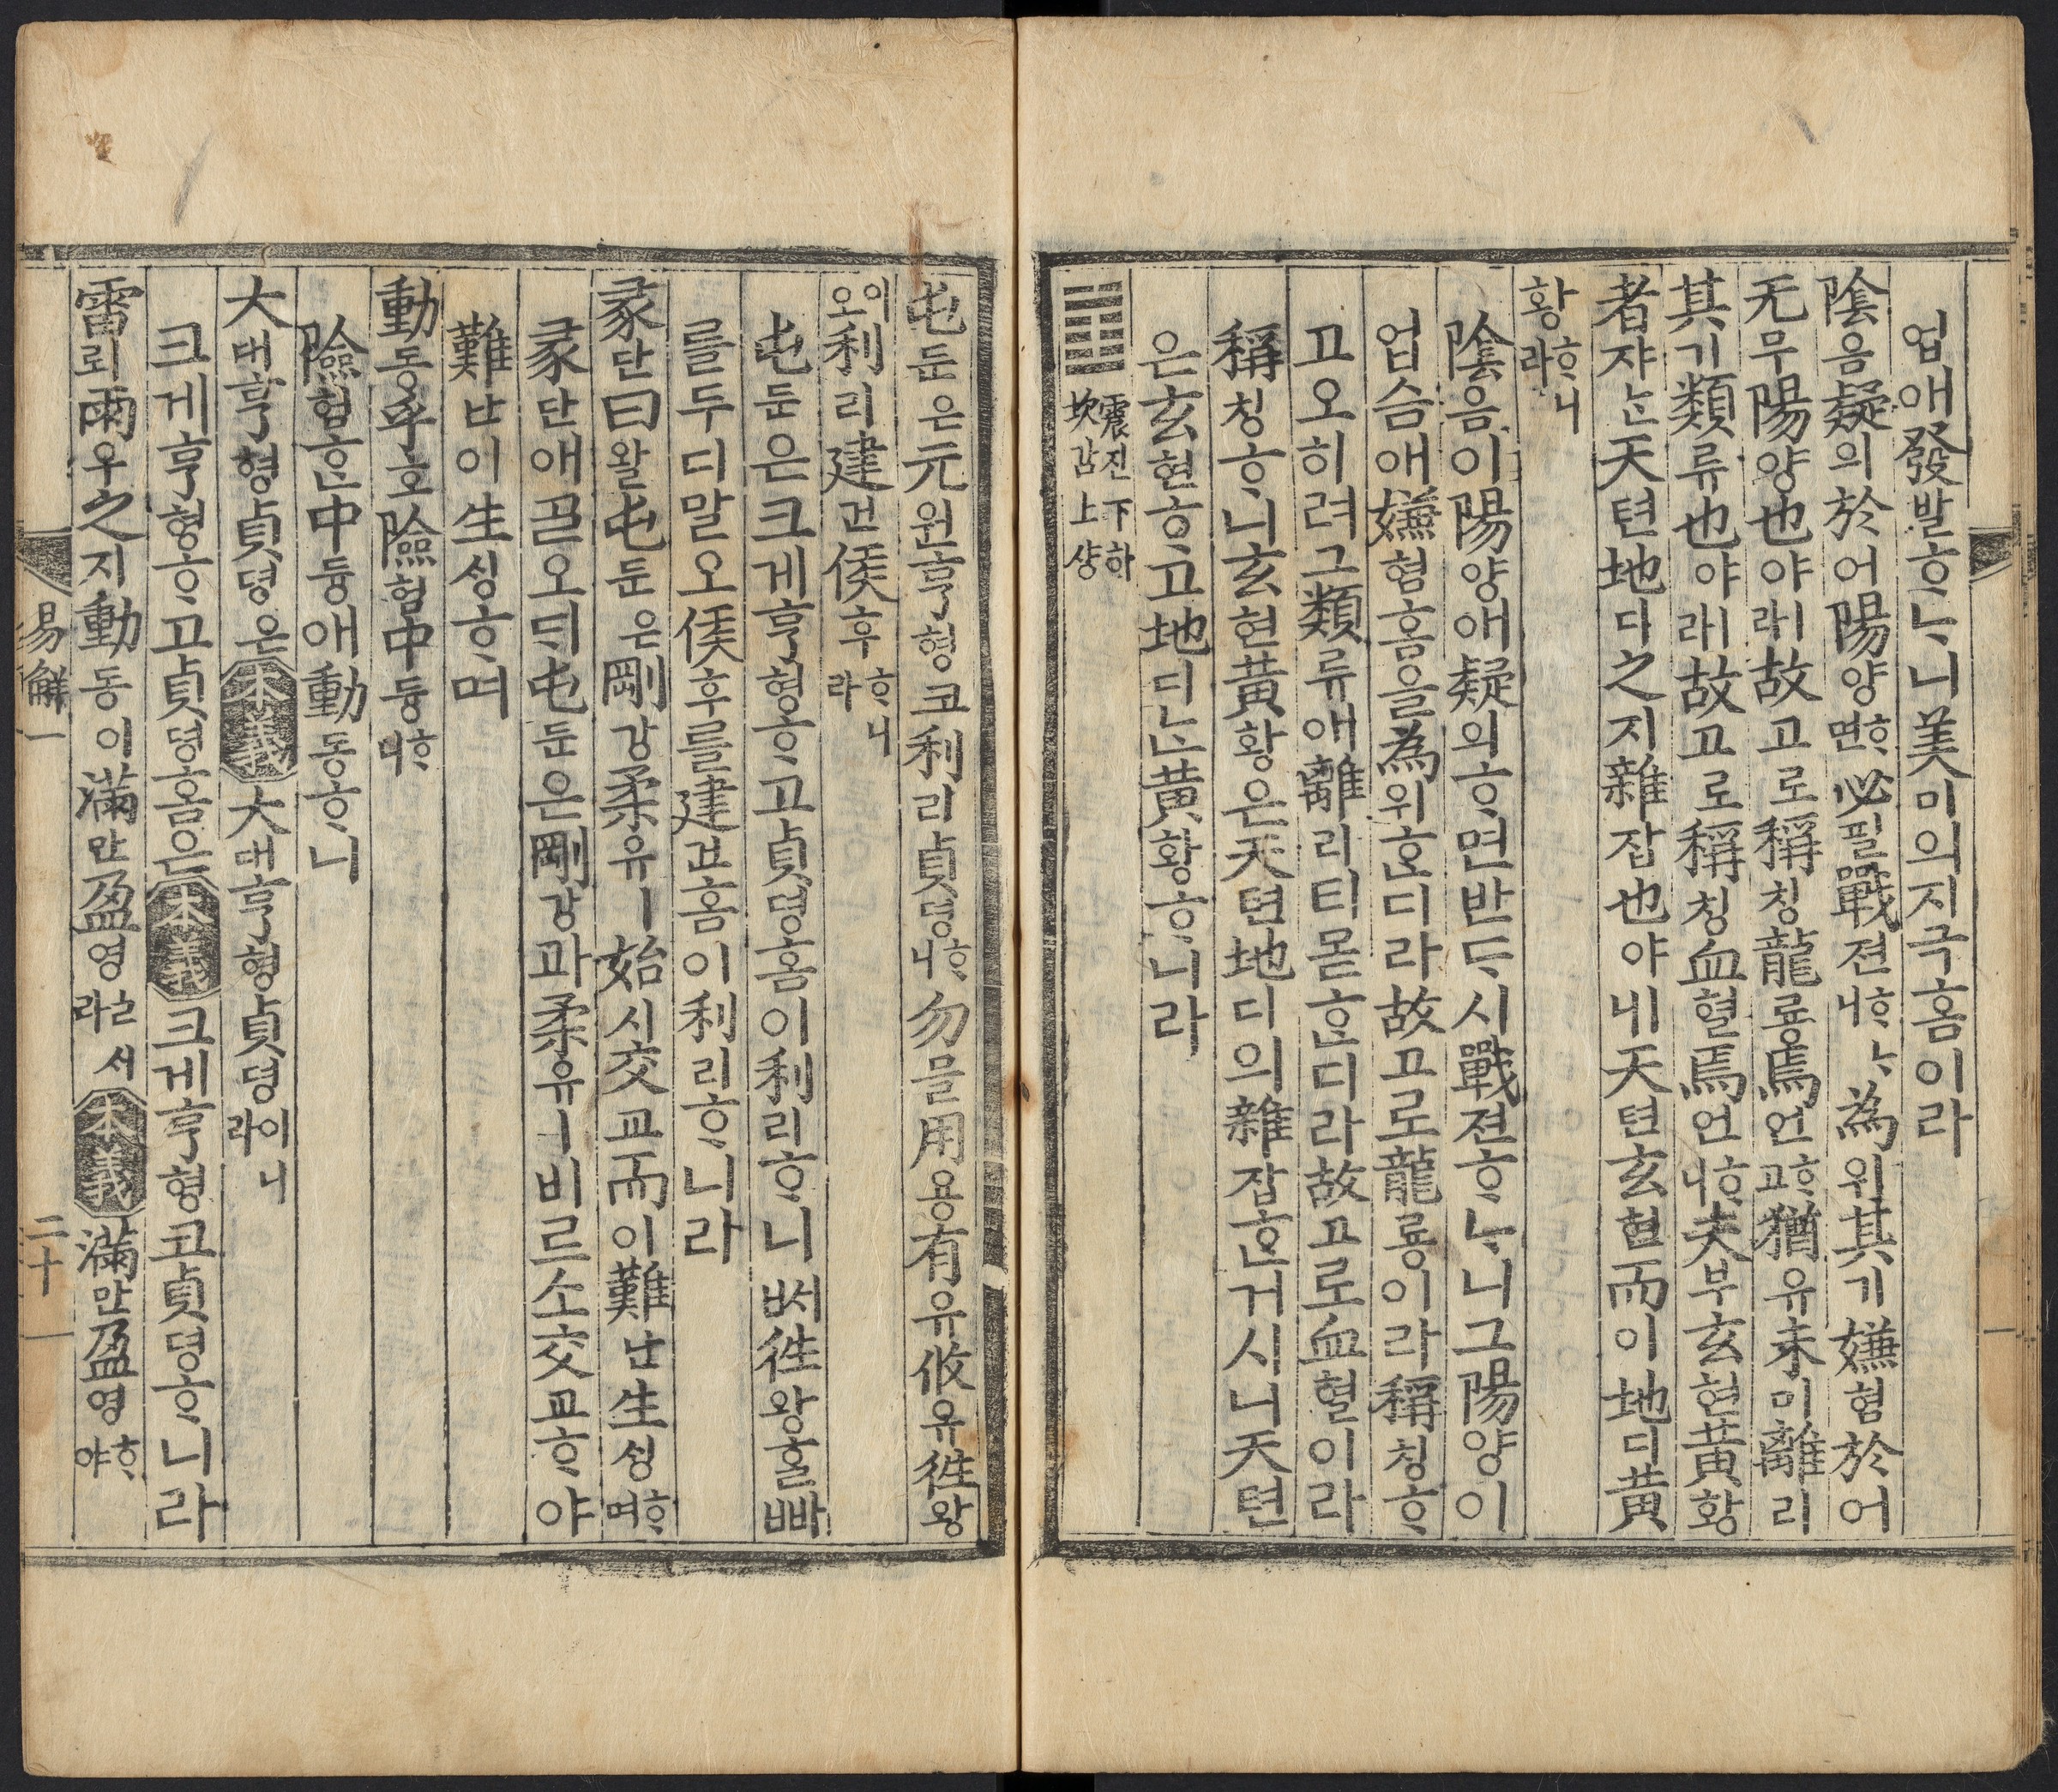 업애發발ᄒᆞᄂᆞ니美미의지극홈이라
陰음疑의於어陽양ᄒᆞ면必필戰젼ᄒᆞᄂᆞ니爲위其기嫌혐於어
无무陽양也야ㅣ라故고로稱칭龍룡焉언ᄒᆞ고猶유未미離리
其기類류也야ㅣ라故고로稱칭血혈焉언ᄒᆞ니夫부玄현黃황
者쟈ᄂᆞᆫ天텬地디之지雜잡也야ㅣ니天텬玄현而이地디黃
황ᄒᆞ니라
陰음이陽양애疑의ᄒᆞ면반ᄃᆞ시戰젼ᄒᆞᄂᆞ니그陽양이
업슴애嫌혐홈을爲위ᄒᆞᆫ디라故고로龍룡이라稱칭ᄒᆞ
고오히려그類류애離리티몯ᄒᆞᆫ디라故고로血혈이라
稱칭ᄒᆞ니玄현黃황은天텬地디의雜잡ᄒᆞᆫ거시니天텬
은玄현ᄒᆞ고地디ᄂᆞᆫ黃황ᄒᆞ니라
䷂ 震진下하坎감上샹
屯둔은元원亨형코利리貞뎡ᄒᆞ니勿믈用용有유攸유往왕
이오利리建건侯후ᄒᆞ니라
屯둔은크게亨형ᄒᆞ고貞뎡홈이利리ᄒᆞ니ᄡᅥ往왕홀빠
를두디말오侯후를建건홈이利리ᄒᆞ니라
彖단曰왈屯둔은剛강柔유ㅣ始시交교而이難난生ᄉᆡᆼᄒᆞ며
彖단애ᄀᆞᆯ오ᄃᆡ屯둔은剛강과柔유ㅣ비르소交교ᄒᆞ야
難난이生ᄉᆡᆼᄒᆞ며
動동乎호險험中듕ᄒᆞ니
險험ᄒᆞᆫ中듕애動동ᄒᆞ니
大대亨형貞뎡은本義大대亨형貞뎡이니라
크게亨형ᄒᆞ고貞뎡홈은本義크게亨형코貞뎡ᄒᆞ니라
雷뢰雨우之지動동이滿만盈영ᄒᆞᆯᄉᆡ라本義滿만盈영ᄒᆞ야
易解一 二十一